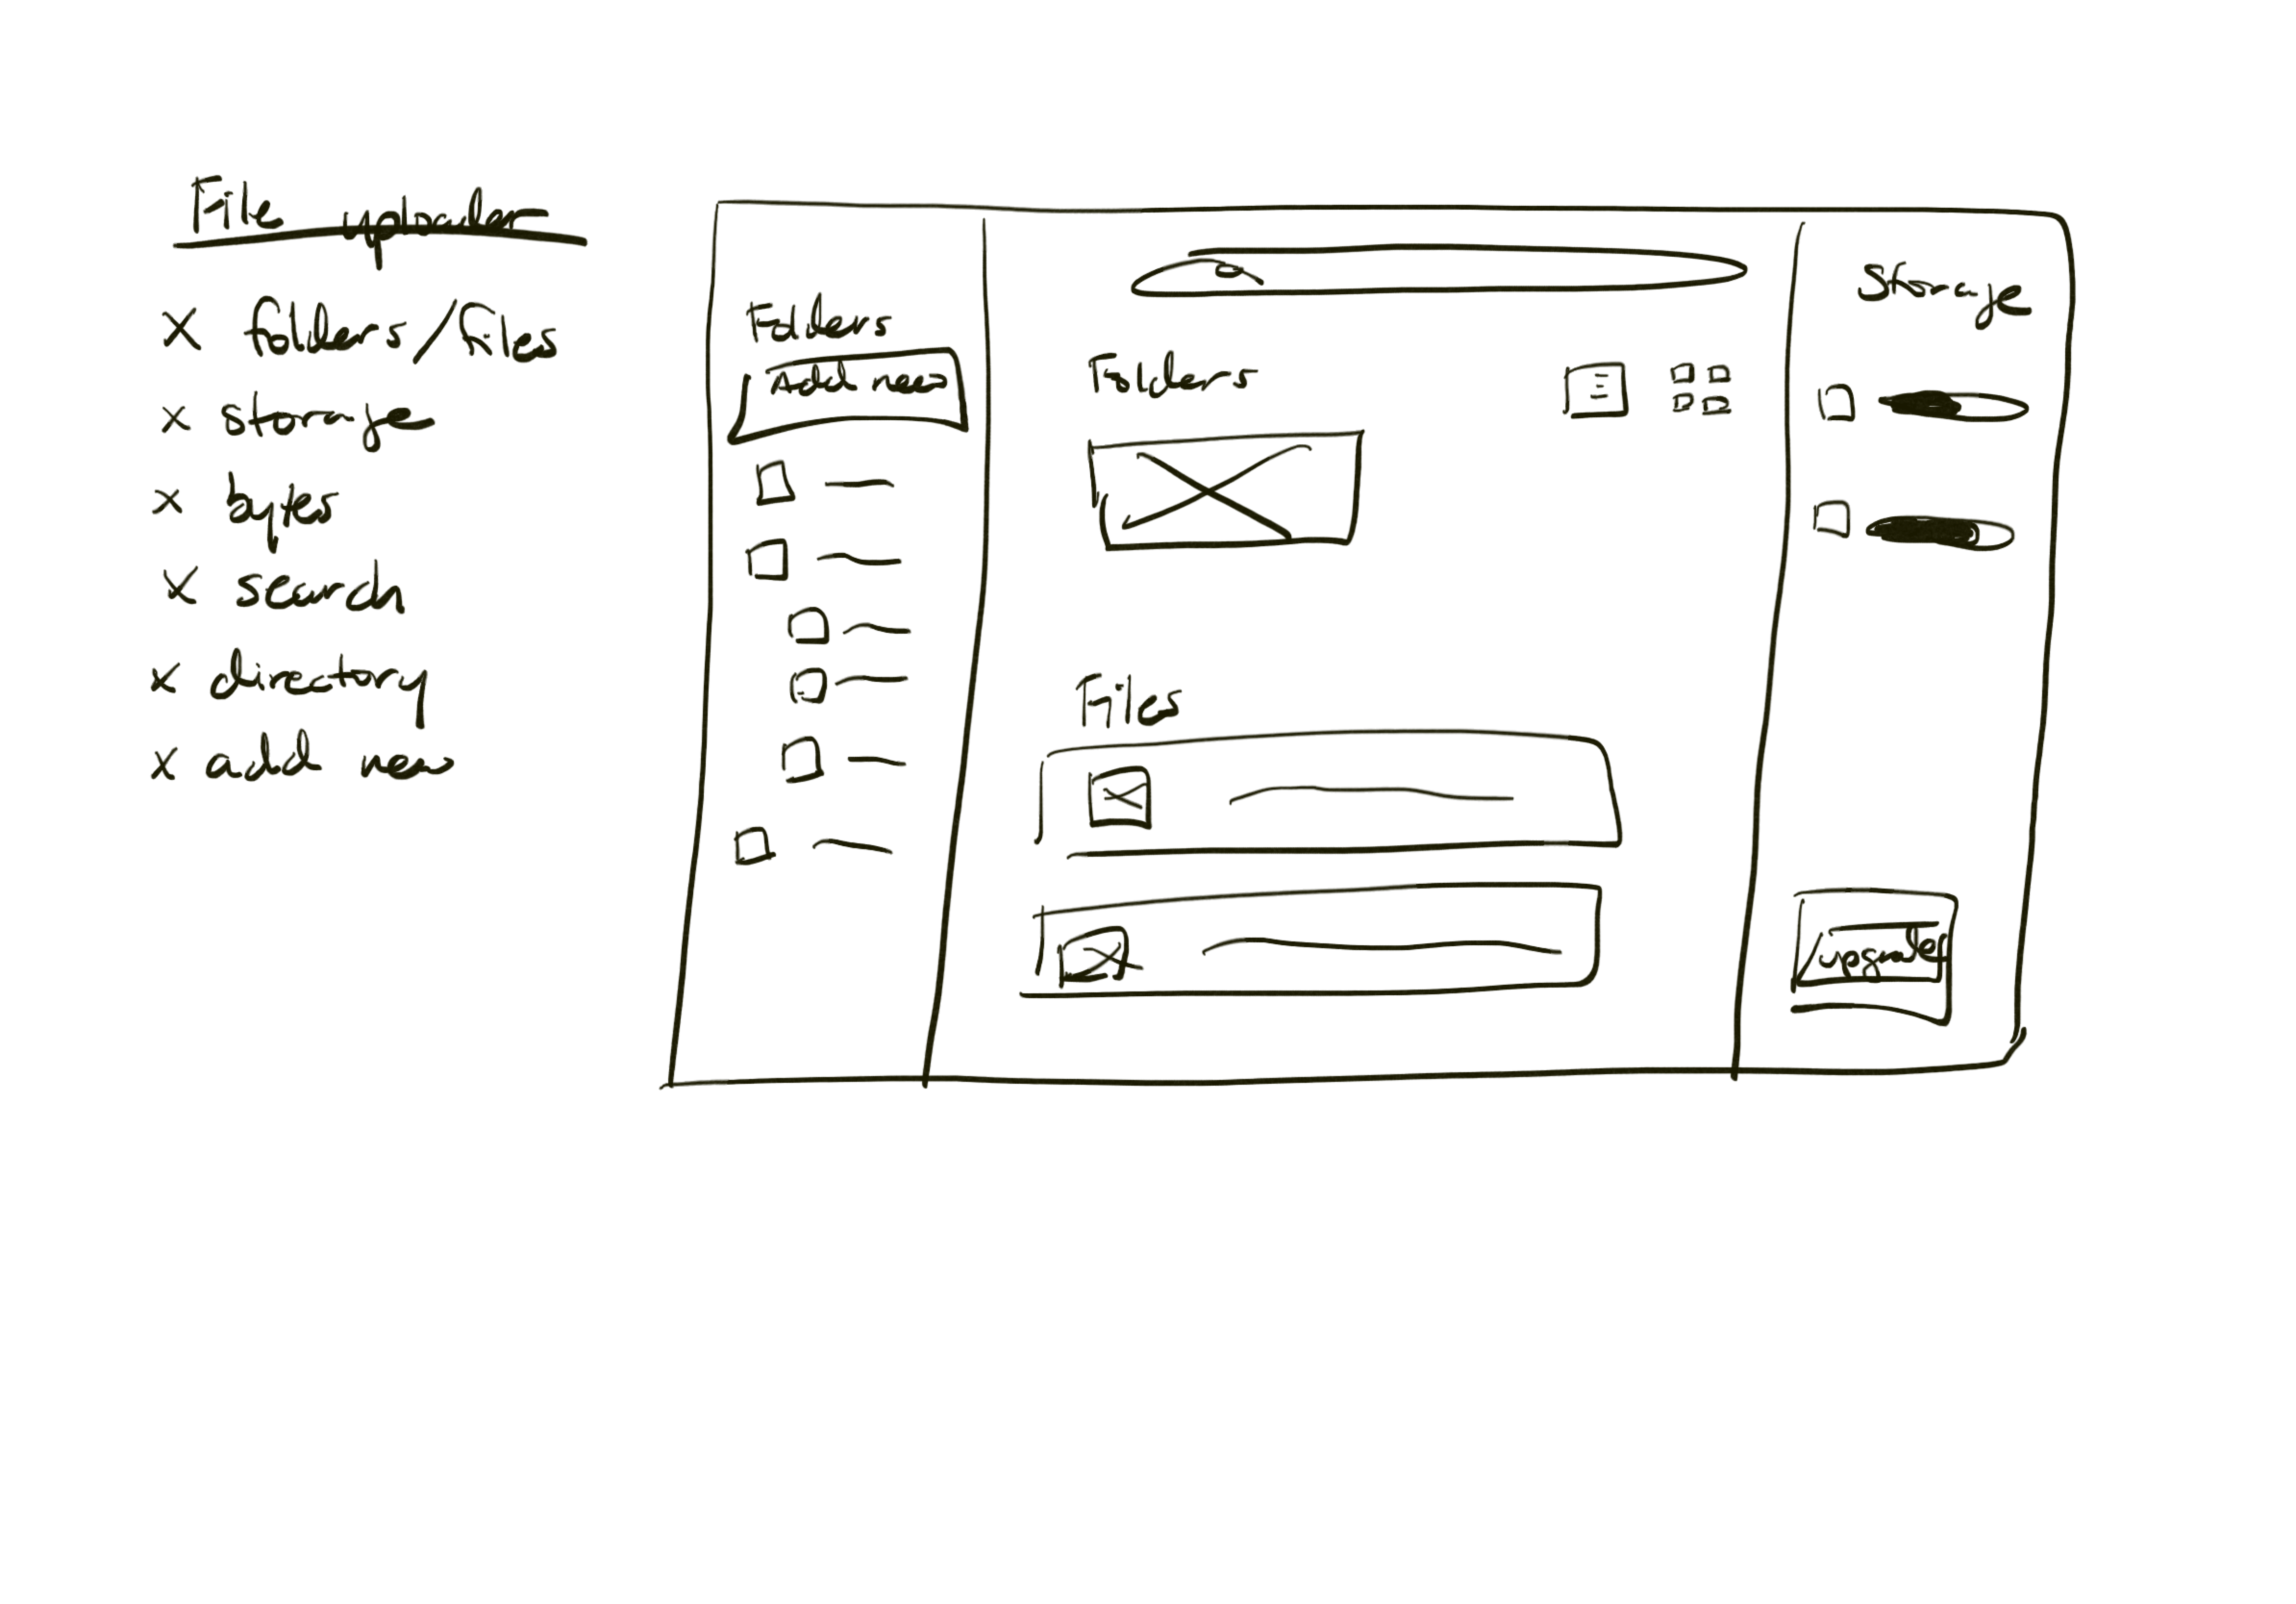 File uploader
x folders/files
x storage
x bytes
x search
x directory
x add new
Folders
Add new
Folders
Files
Storage
upgrade